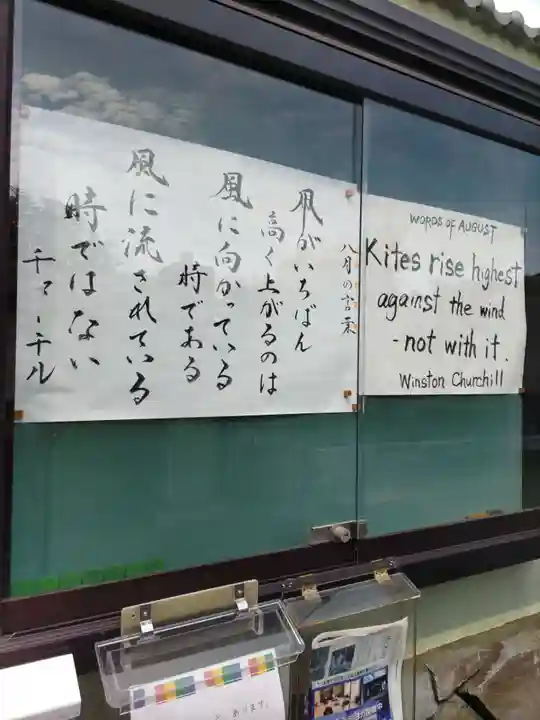 八月の言葉
凧がいちばん
高く上がるのは
風に向かっている
時である
風に流されている
時ではない
チャーチル
WORDS OF AUGUST
Kites rise highest
against the wind
- not with it.
Winston Churchill